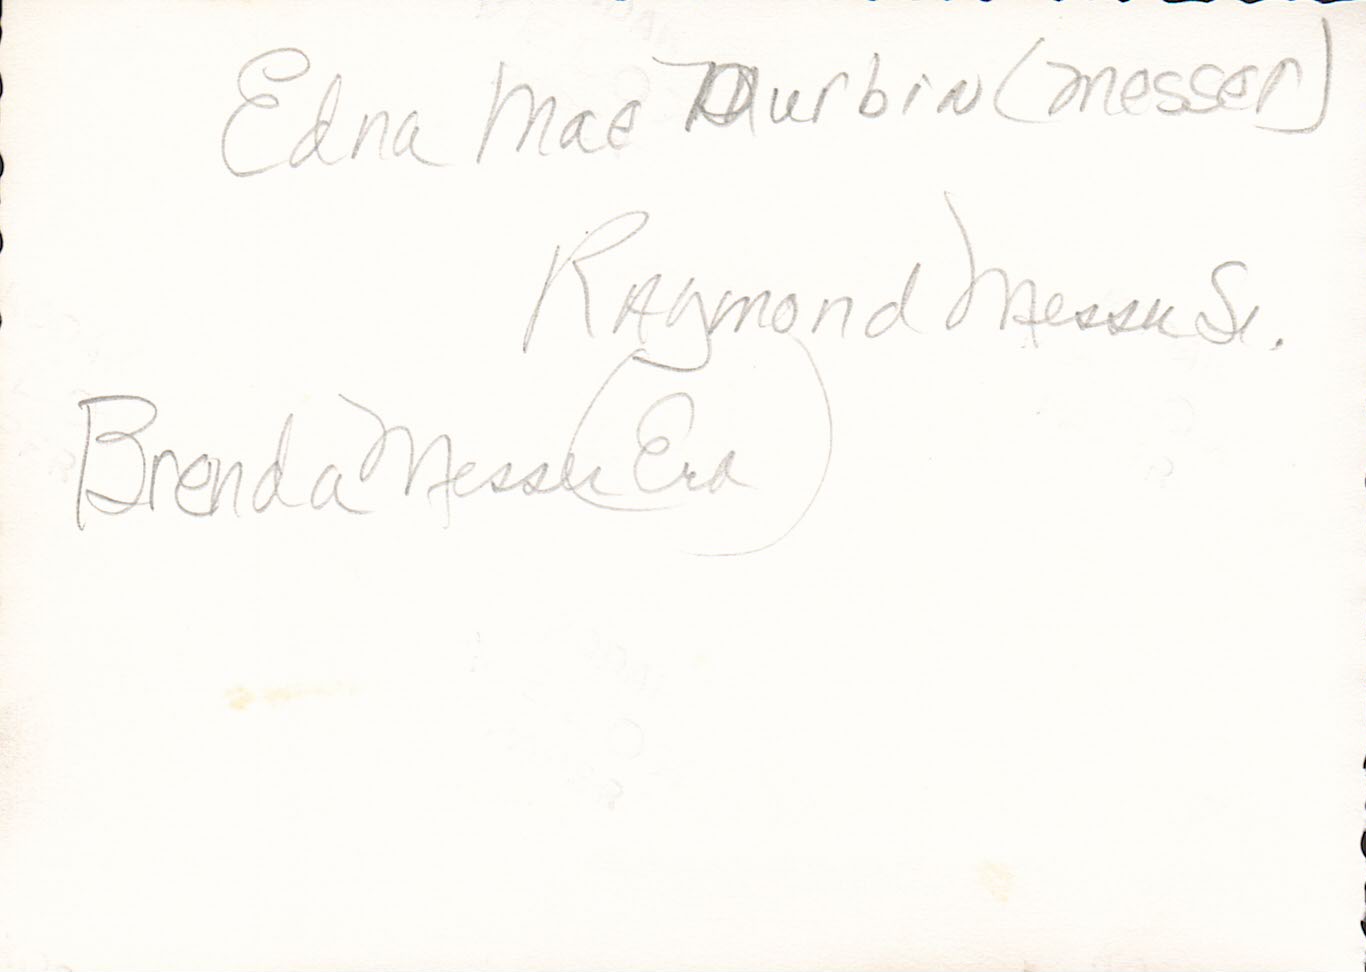 Edna Mae Durbin (Messer)
Raymond Messer Sr.
Brenda Messer (Era)